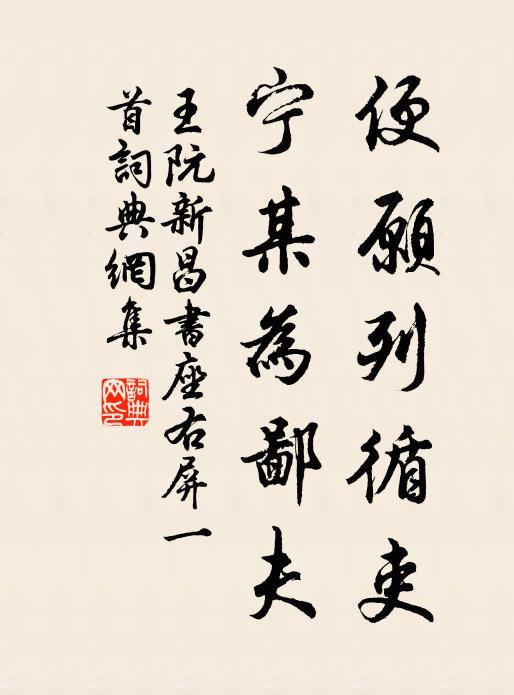 便願列循吏
宁某為鄙夫
王阮新昌書座右屏一
首詞典網集
詞典
网印